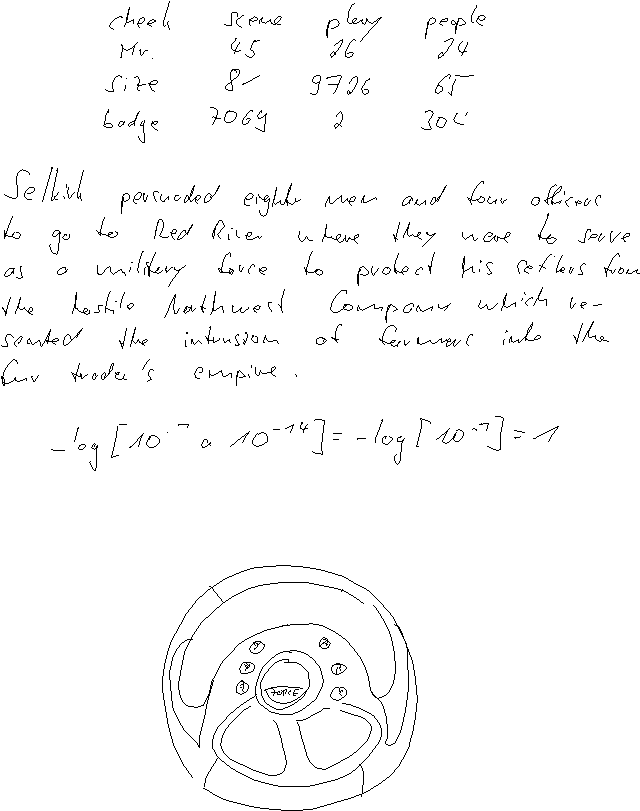 cheek scene play people
Mr. 45 26 24
size 81 9726 65
badge 7069 2 304
Selkirk persuaded eighty men and four officers
to go to Red River where they were to serve
as a military force to protect his settlers from
the hostile Northwest Company which re-
sented the intrusion of farmers into the
fur trader's empire.
-log [10⁻⁷ a 10⁻¹⁴] = -log [10⁻⁷] = 1
FORCE